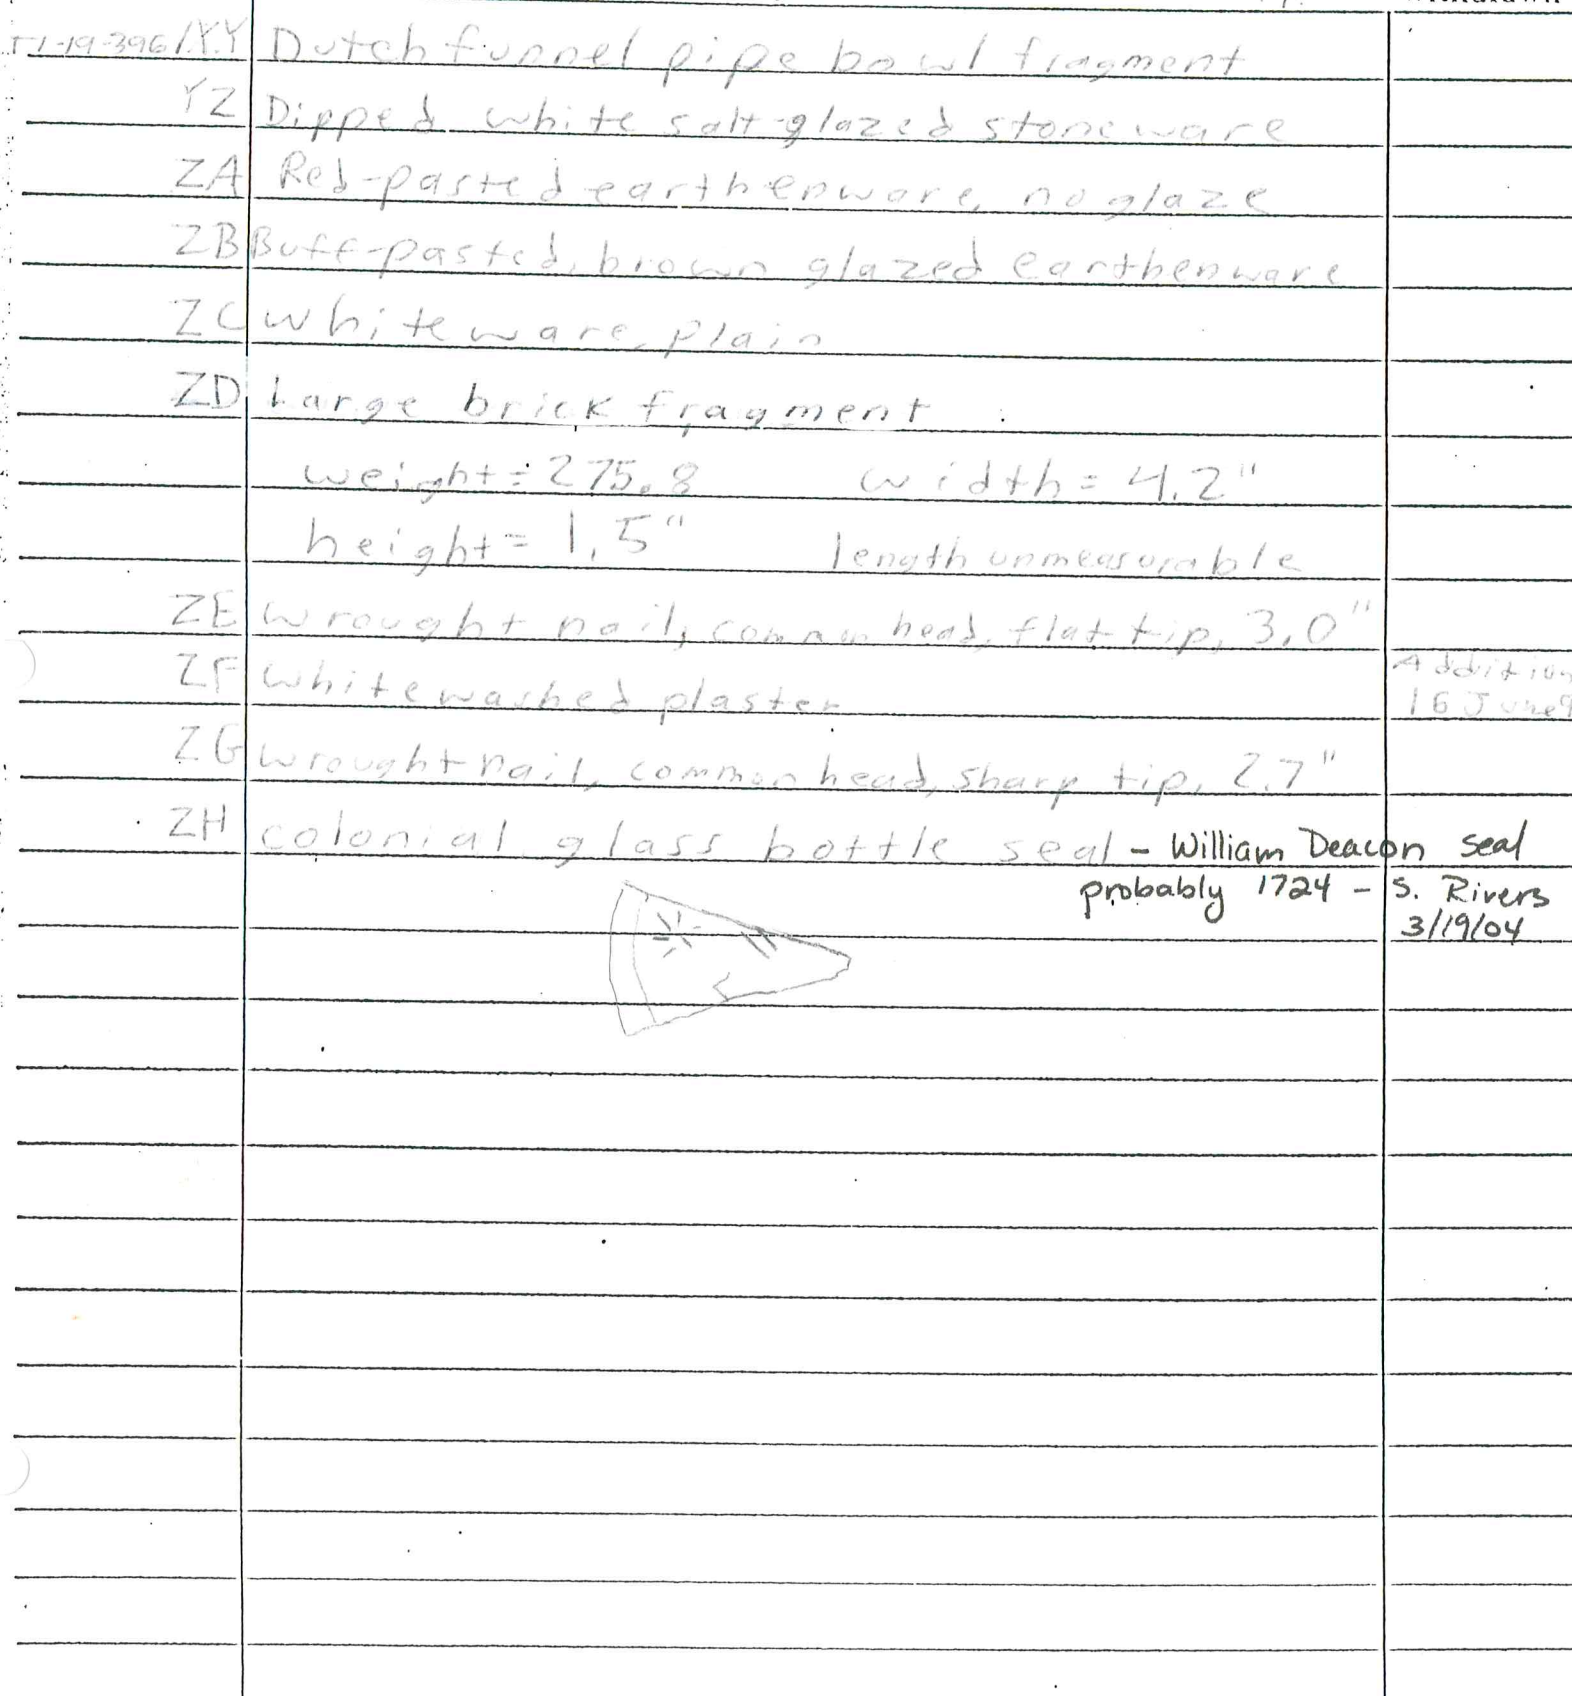 T1-19-396/YY Dutch funnel pipe bowl fragment
YZ Dipped white salt-glazed stoneware
ZA Red-pasted earthenware, no glaze
ZB Buff-pasted, brown glazed earthenware
ZC Whiteware, plain
ZD Large brick fragment
weight = 275.8 width = 4.2"
height = 1.5" length unmeasurable
ZE Wrought nail, common head, flat tip, 3.0"
ZF Whitewashed plaster Addition
16 June
ZG Wrought nail, common head, sharp tip, 2.7"
ZH colonial glass bottle seal - William Deacon seal
probably 1724 - S. Rivers
3/19/04